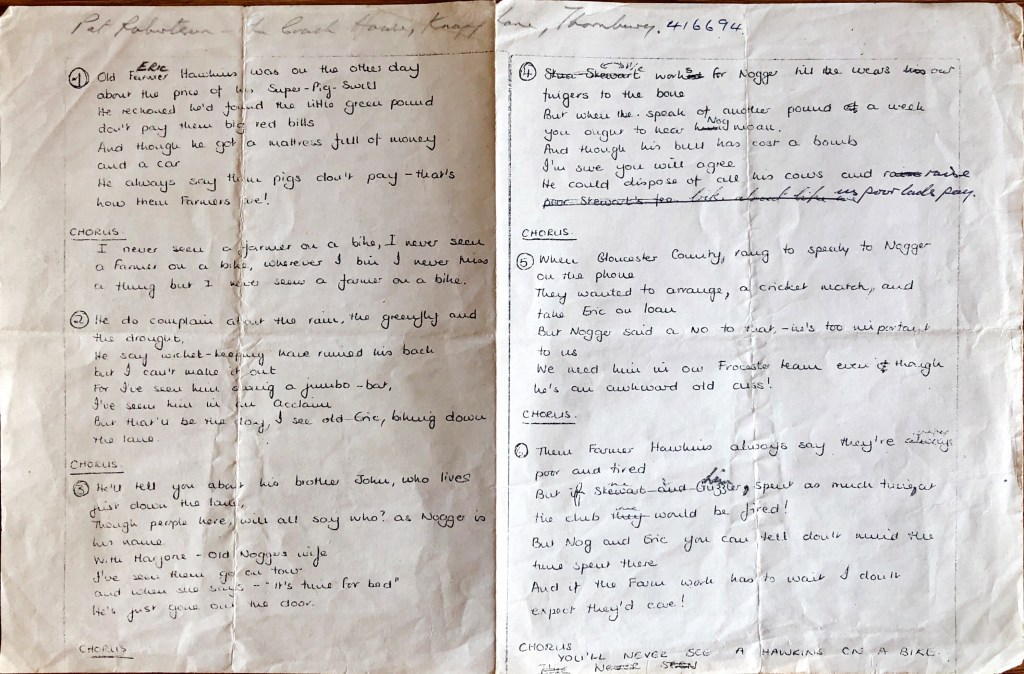 Pat Robertson - The Coach House, Knapp Lane, Thornbury. 416694
① Old Farmer Eric Hawkins was on the other day
about the price of his Super-Pig-Swill
He reckoned he'd found the little green pound
don't pay them big red bills
And though he got a mattress full of money
and a car
He always say them pigs don't pay - that's
how them Farmers live!
CHORUS.
I never seen a farmer on a bike, I never seen
a Farmer on a bike, wherever I bin I never miss
a thing but I never seen a farmer on a bike.
② He do complain about the rain, the greenfly and
the drought,
He say wicket-keeping have ruined his back
but I can't make it out
For I've seen him driving a jumbo-bat,
I've seen him in an Acclaim
But that'll be the day, I see old Eric, biking down
the lane.
CHORUS.
③ He'll tell you about his brother John, who lives
just down the lane,
Though people here, will all say who? as Nogger is
his name
With Marjorie - Old Noggers wife
I've seen them go on 'tow'
and when she says - "It's time for bed"
He's just gone out the door.
CHORUS
④ Stewart works for Nogger till he wears our
fingers to the bone
But when the speak of another pound a week
you ought to hear Nog moan.
And though his bull has cost a bomb
I'm sure you will agree
He could dispose of all his cows and raise
poor Stewart's fee us poor lads pay.
CHORUS.
⑤ When Gloucester County, rang to speak to Nogger
on the phone
They wanted to arrange, a cricket match, and
take Eric on loan
But Nogger said a No to that, - he's too important
to us
We need him in our Frocester team even though
he's an awkward old cuss!
CHORUS.
⑥ Them Farmer Hawkins always say they're always
poor and tired
But if Stewart and Guzzler, spent as much time, at
the club they would be fired!
But Nog and Eric you can tell don't mind the
time spent there
And if the Farm work has to wait I don't
expect they'd care!
CHORUS
YOU'LL NEVER SEE A HAWKINS ON A BIKE.
NEVER SEEN